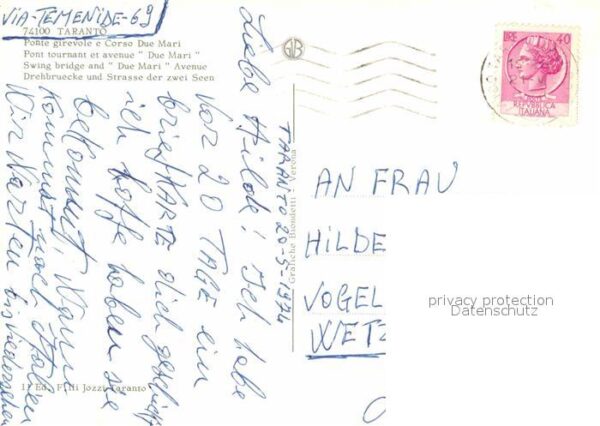 VIA-TEMENIDE-69
74100 TARANTO
Ponte girevole e Corso Due Mari
Pont tournant et avenue " Due Mari "
Swing bridge and " Due Mari " Avenue
Drehbruecke und Strasse der zwei Seen
Liebe Hilde! Ich habe
vor 20 TAGE ein
brief KARTE dich geschickt
ich hoffe haben sie
bekommt, Wann
kommst nach Italien
Wir Warten bis wiedersehen
TARANTO 20-5-1974
Grafiche Biondetti - Verona
LIRE 40
REPUBBLICA
ITALIANA
AN FRAU
HILDE
VOGEL
WETZ
privacy protection
Datenschutz
Ed. F.lli Jozzi Taranto